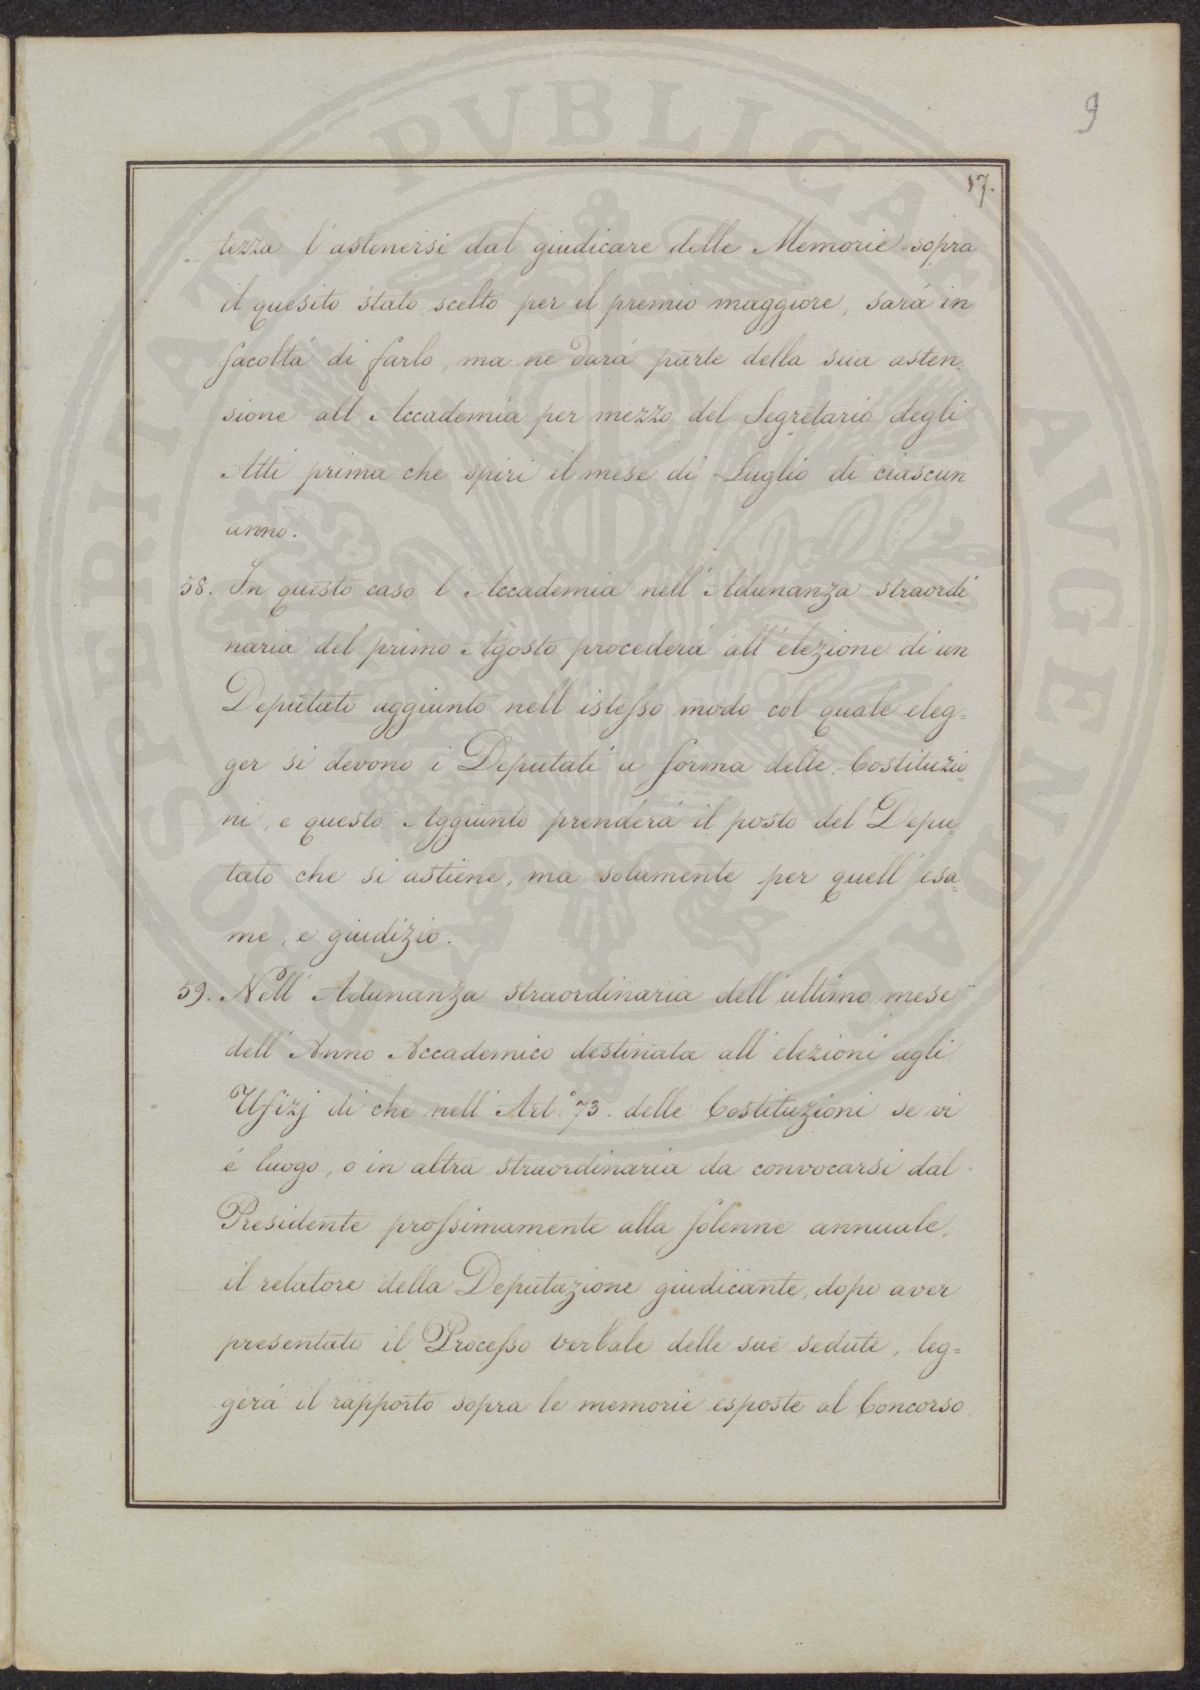 9
17.
tezza l'astenersi dal giudicare delle Memorie sopra
il quesito stato scelto per il premio maggiore, sarà in
facoltà di farlo, ma ne darà parte della sua asten-
sione all'Accademia per mezzo del Segretario degli
Atti prima che spiri il mese di Luglio di ciascun
anno.
58. In questo caso l'Accademia nell'Adunanza straordi-
naria del primo Agosto procederà all'elezione di un
Deputato aggiunto nell'istesso modo col quale eleg=
ger si devono i Deputati a forma delle Costituzio-
ni, e questo Aggiunto prenderà il posto del Depu-
tato che si astiene, ma solamente per quell'esa-
me, e giudizio.
59. Nell'Adunanza straordinaria dell'ultimo mese
dell'Anno Accademico destinata all'elezioni agli
Ufizj di che nell'Art.° 73. delle Costituzioni se vi
è luogo, o in altra straordinaria da convocarsi dal
Presidente prossimamente alla solenne annuale,
il relatore della Deputazione giudicante, dopo aver
presentato il Processo verbale delle sue sedute, leg=
gerà il rapporto sopra le memorie esposte al Concorso
PROSPERITATI PVBLICAE AVGENDAE